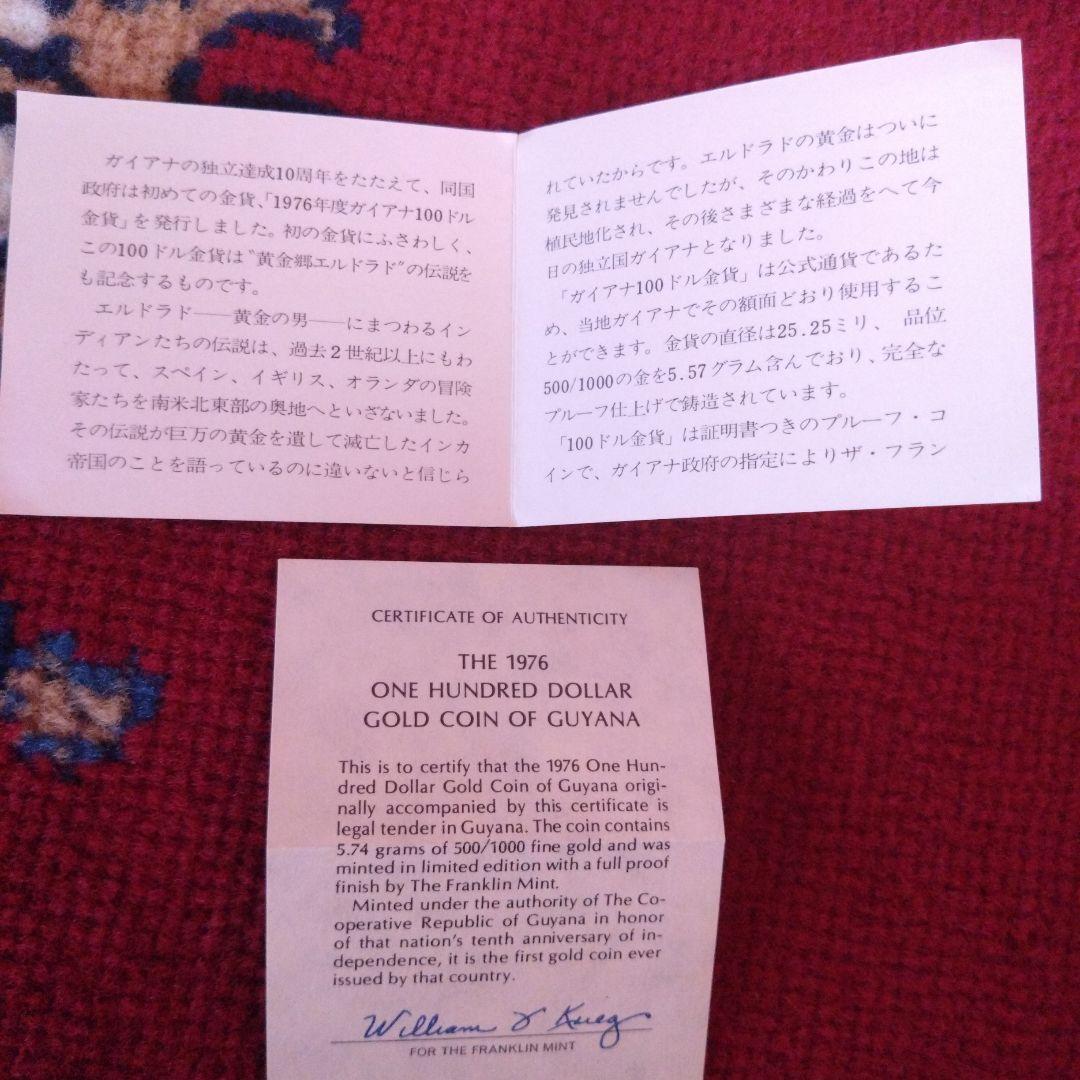 ガイアナの独立達成10周年をたたえて、同国
政府は初めての金貨、「1976年度ガイアナ100ドル
金貨」を発行しました。初の金貨にふさわしく、
この100ドル金貨は"黄金郷エルドラド"の伝説を
も記念するものです。
エルドラド——黄金の男——にまつわるイン
ディアンたちの伝説は、過去2世紀以上にもわ
たって、スペイン、イギリス、オランダの冒険
家たちを南米北東部の奥地へといざないました。
その伝説が巨万の黄金を遺して滅亡したインカ
帝国のことを語っているのに違いないと信じら
れていたからです。エルドラドの黄金はついに
発見されませんでしたが、そのかわりこの地は
植民地化され、その後さまざまな経過をへて今
日の独立国ガイアナとなりました。
「ガイアナ100ドル金貨」は公式通貨であるた
め、当地ガイアナでその額面どおり使用するこ
とができます。金貨の直径は25.25ミリ、品位
500/1000の金を5.57グラム含んでおり、完全な
プルーフ仕上げで鋳造されています。
「100ドル金貨」は証明書つきのプルーフ・コ
インで、ガイアナ政府の指定によりザ・フラン
CERTIFICATE OF AUTHENTICITY
THE 1976
ONE HUNDRED DOLLAR
GOLD COIN OF GUYANA
This is to certify that the 1976 One Hun-
dred Dollar Gold Coin of Guyana origi-
nally accompanied by this certificate is
legal tender in Guyana. The coin contains
5.74 grams of 500/1000 fine gold and was
minted in limited edition with a full proof
finish by The Franklin Mint.
Minted under the authority of The Co-
operative Republic of Guyana in honor
of that nation's tenth anniversary of in-
dependence, it is the first gold coin ever
issued by that country.
William F Krieg
FOR THE FRANKLIN MINT